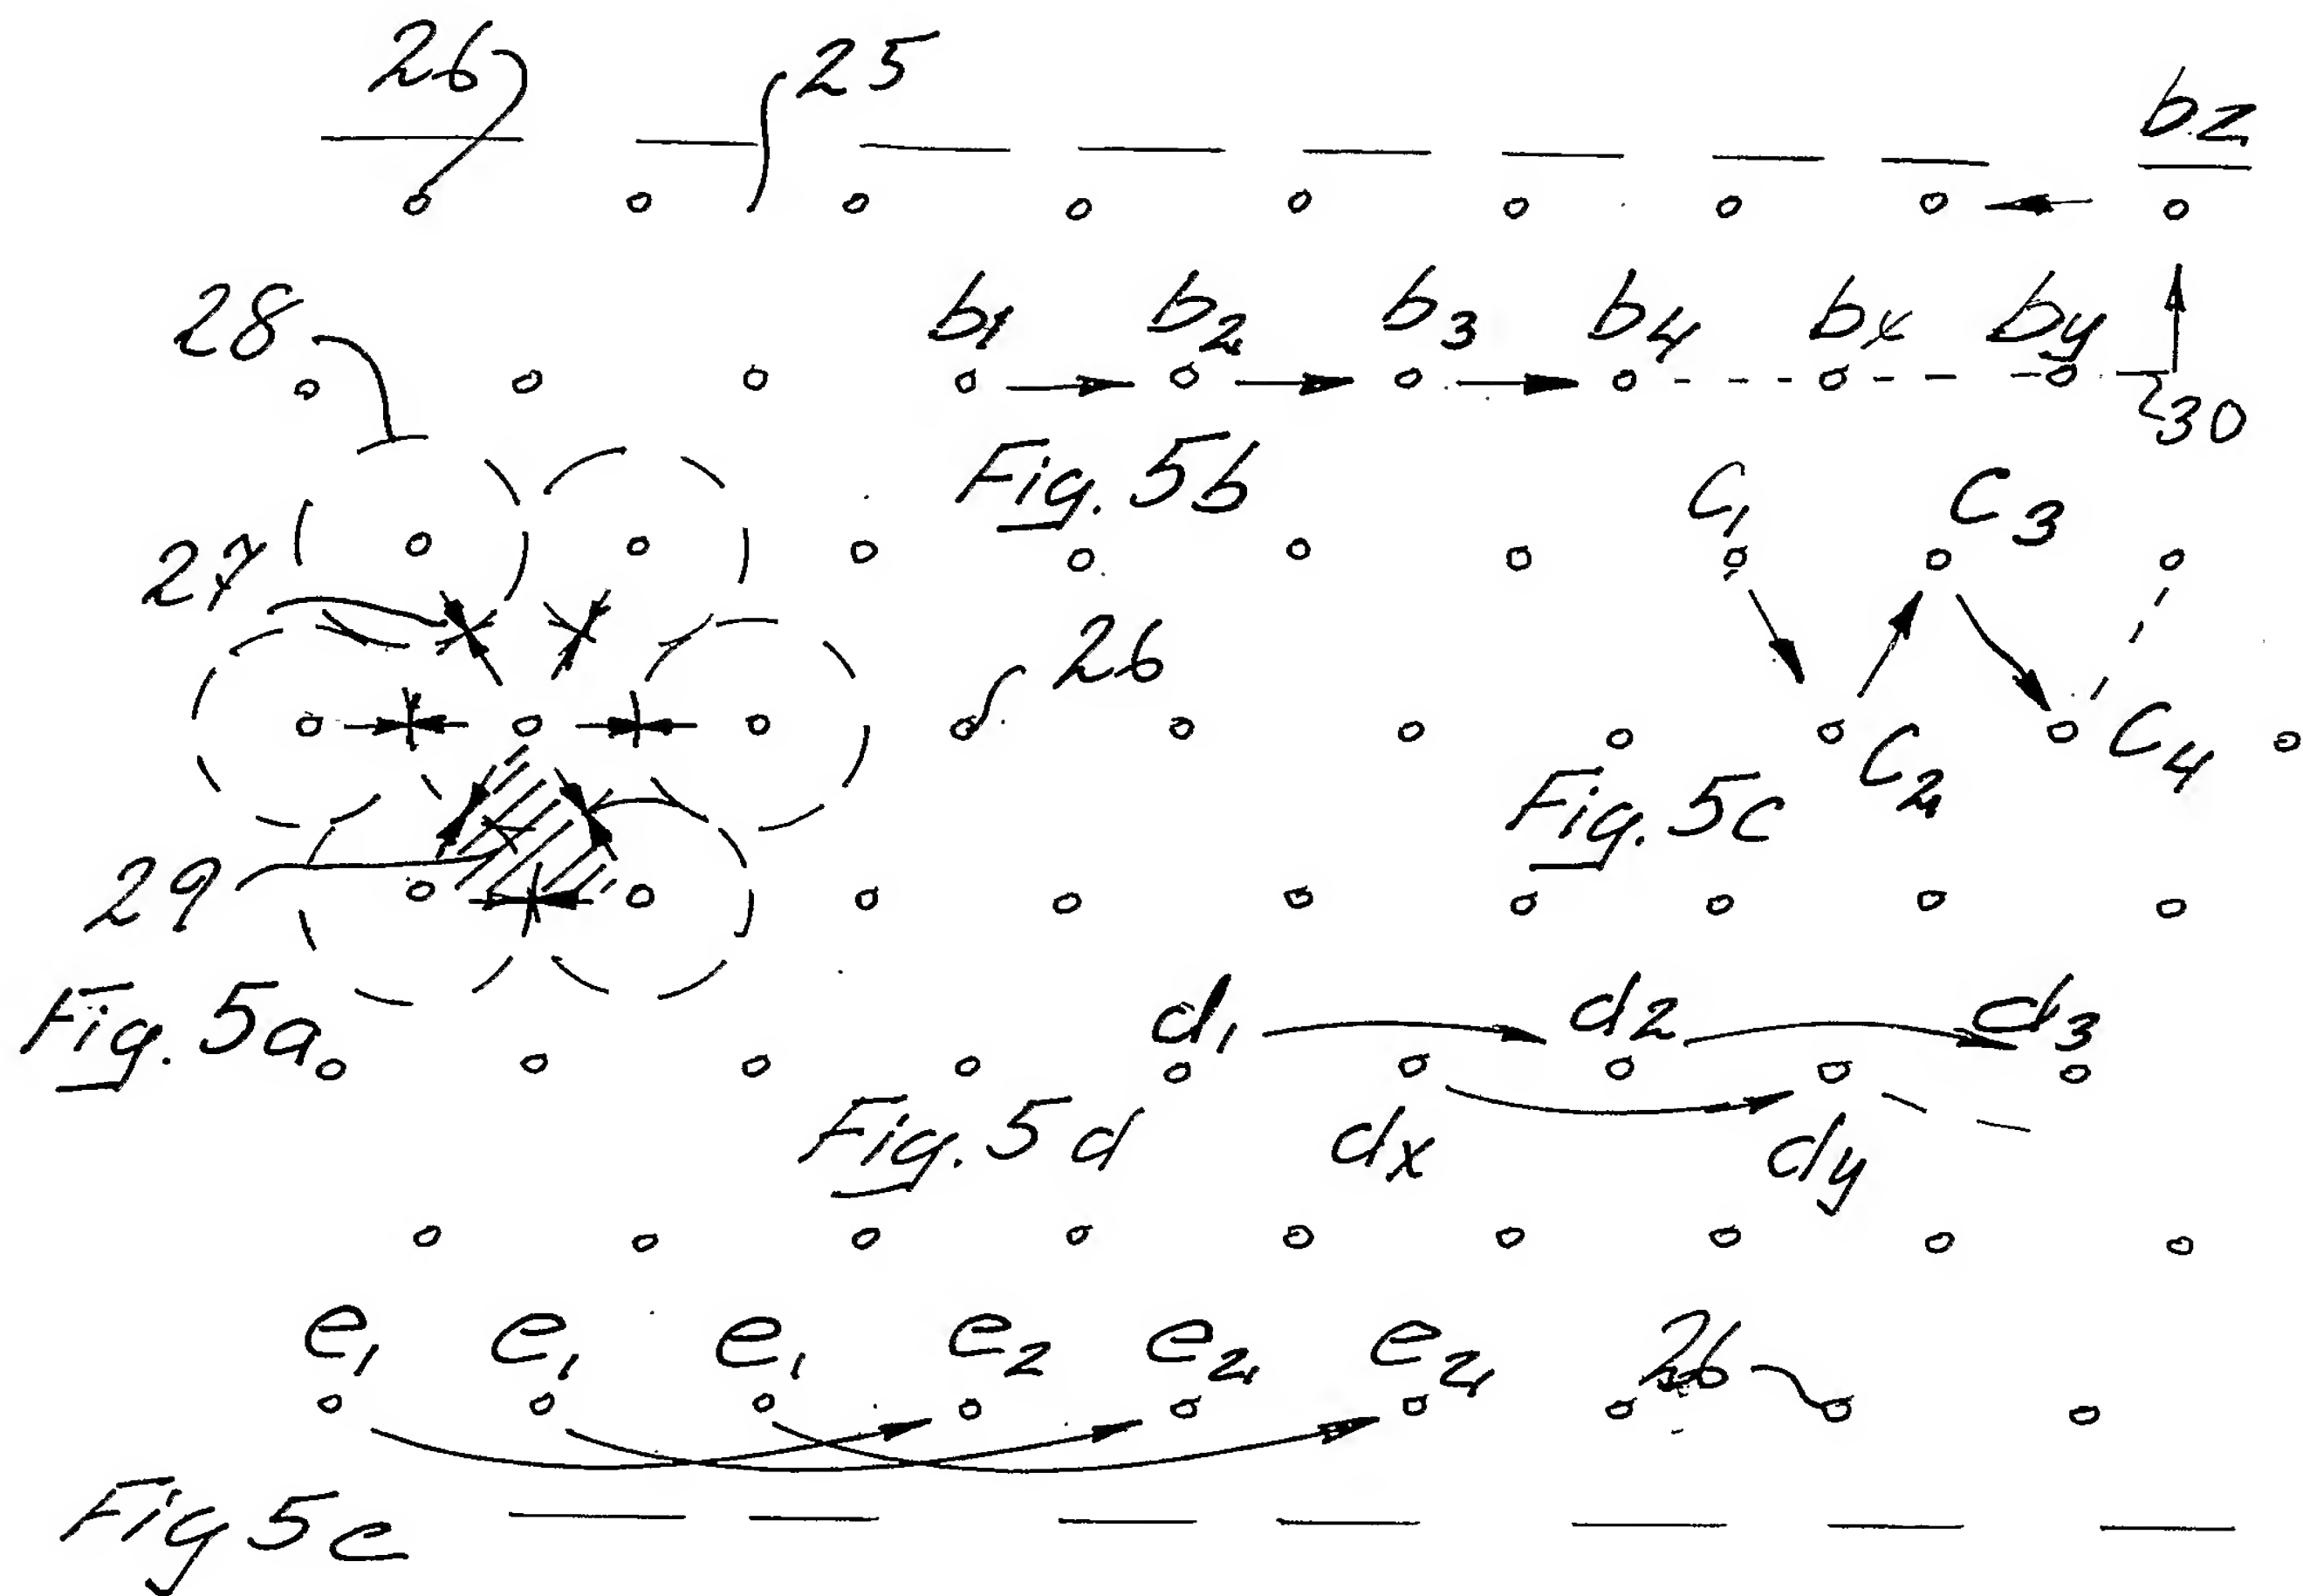 26 25 bz
28 b1 b2 b3 b4 bx by
30
Fig. 5b
C1 C3
27
26
C2 C4
Fig. 5c
29
Fig. 5a
d1 d2 d3
Fig. 5d dx dy
e1 e1 e1 e2 e2 e2 26
Fig 5e